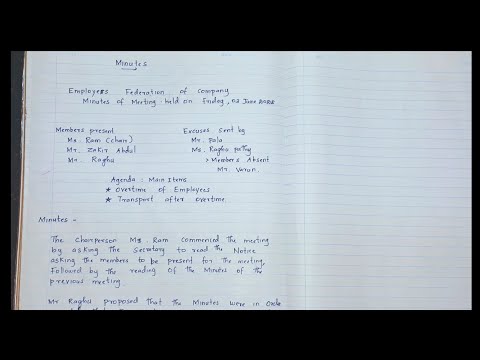 Minutes
Employees Federation of company
Minutes of Meeting held on friday, 03 June 2022
Members present
Ms. Ram (chair)
Mr. Zakir Abdul
Mr. Raghu
Excuses sent by
Mr. Bala
Ms. Raghu
Members Absent
Mr. Varun.
Agenda : Main Items
★ Overtime of Employees
★ Transport after overtime.
Minutes -
The Chairperson Ms. Ram commenced the meeting
by asking the Secretary to read the Notice
asking the members to be present for the meeting,
followed by the reading of the Minutes of the
previous meeting.
Mr Raghu proposed that the Minutes were in Order